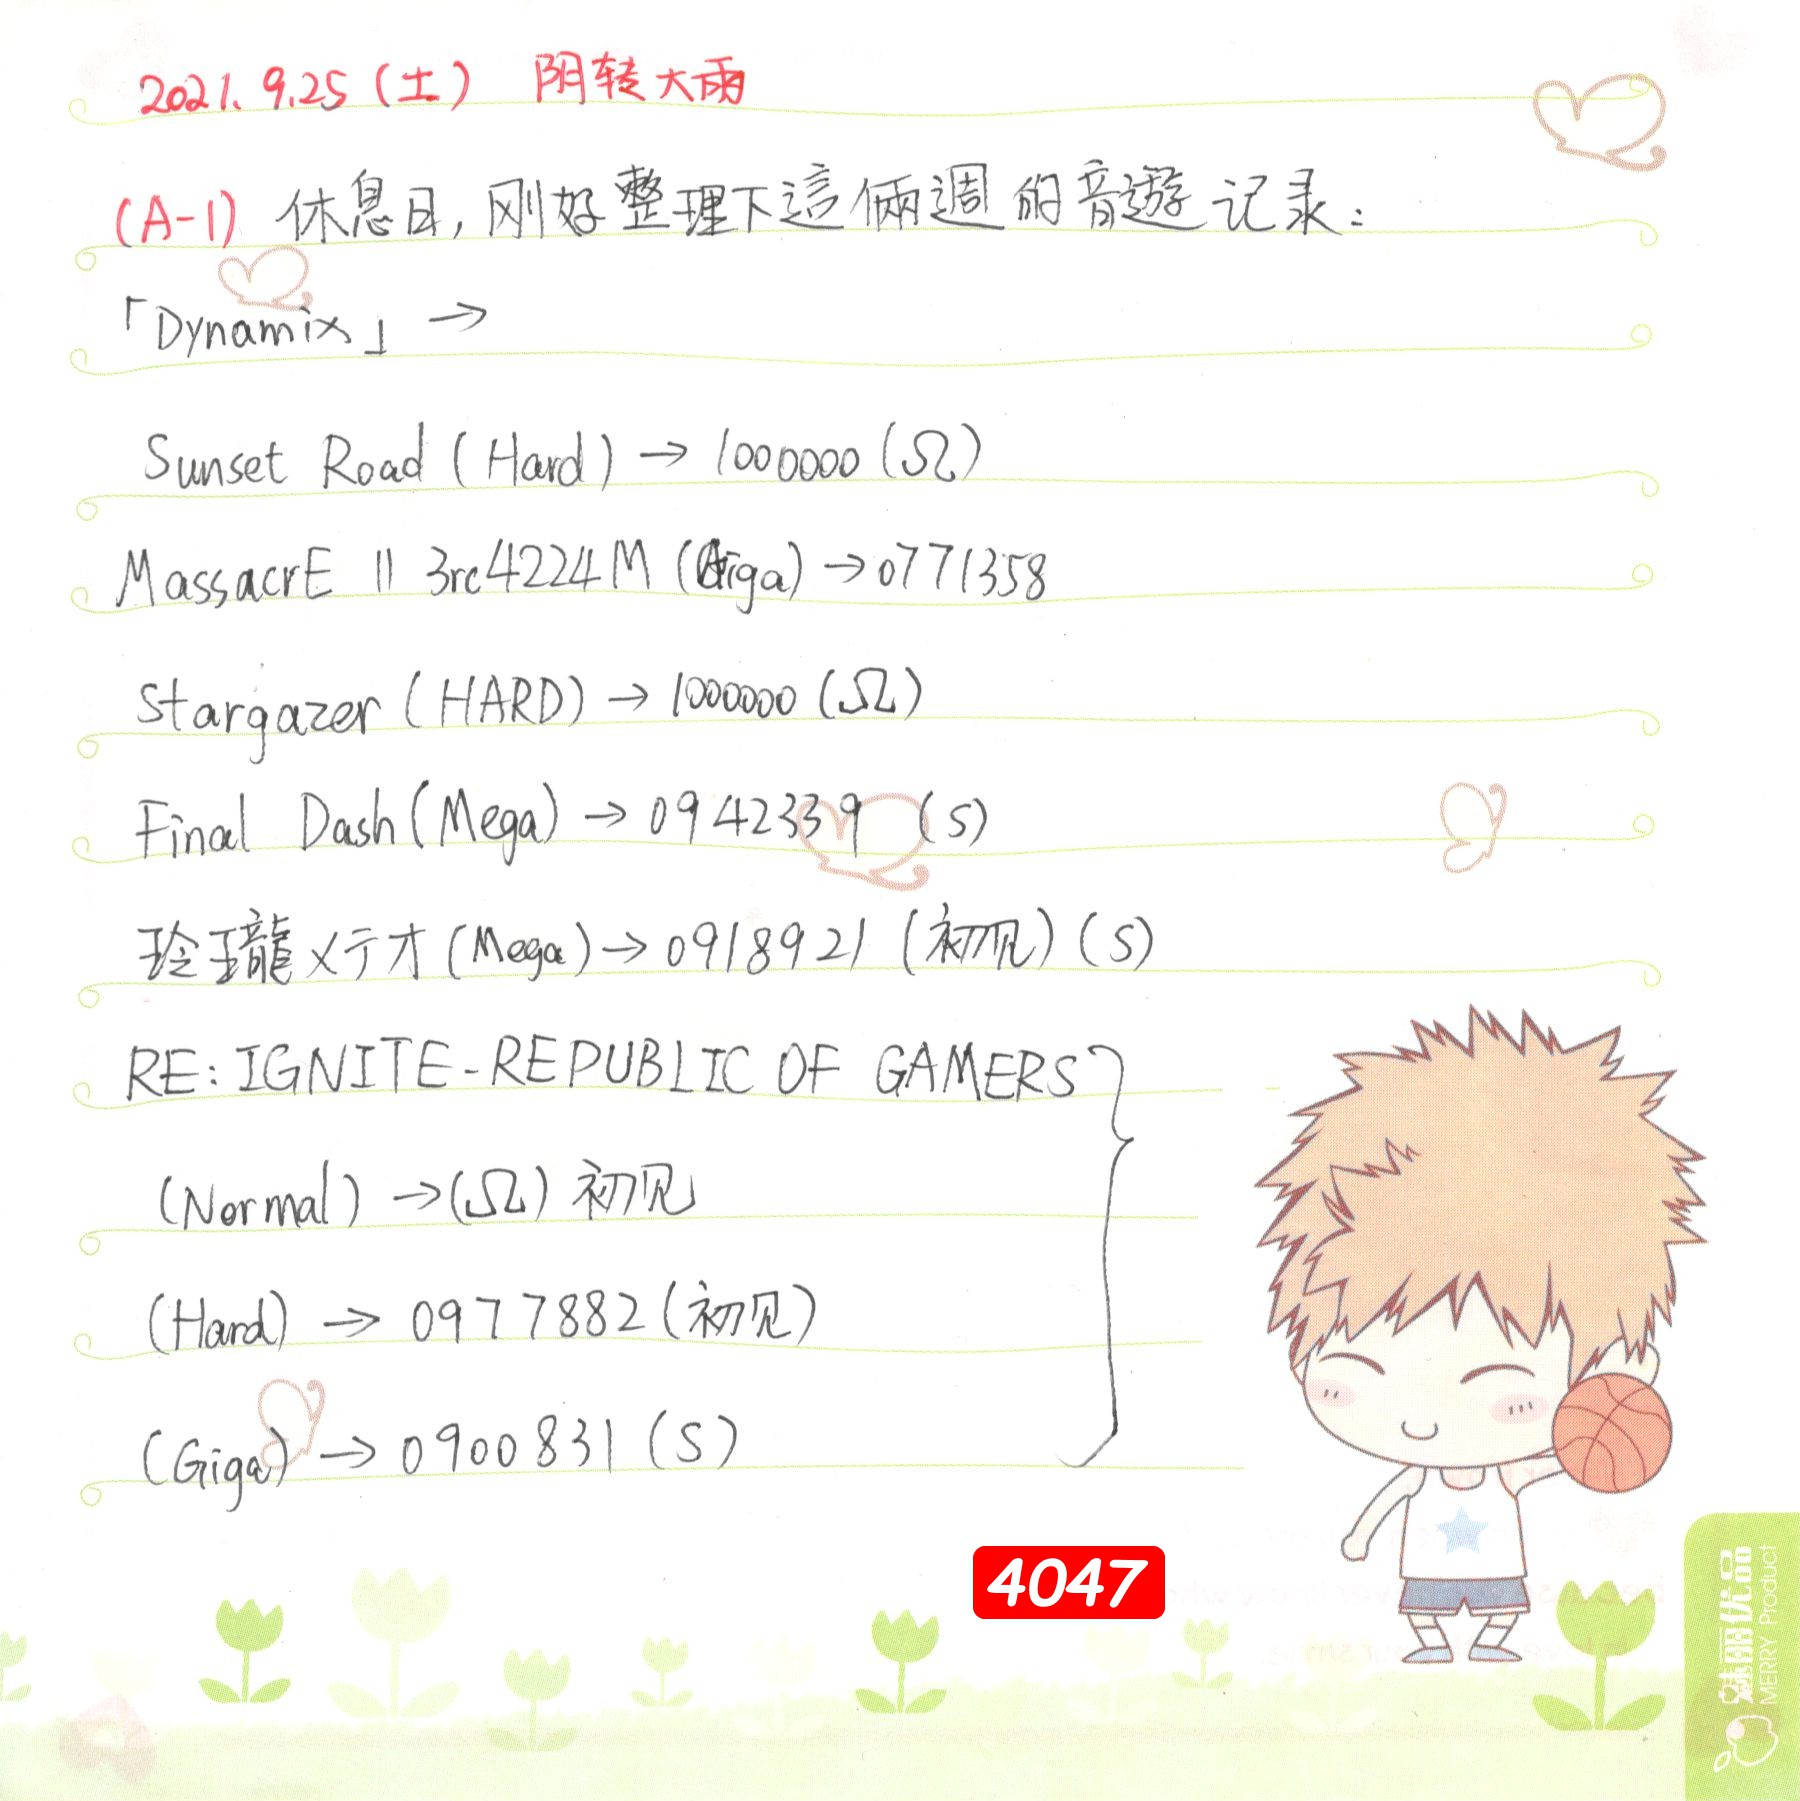 2021.9.25(土) 阴转大雨
(A-1) 休息日,刚好整理下這倆週的音遊记录:
「Dynamix」→
Sunset Road (Hard) → 1000000 (Ω)
MassacrE || 3rc4224M (Giga) → 0771358
Stargazer (HARD) → 1000000 (Ω)
Final Dash (Mega) → 0942339 (S)
玲瓏メテオ (Mega) → 0918921 (初见) (S)
RE:IGNITE-REPUBLIC OF GAMERS
(Normal) → (Ω) 初见
(Hard) → 0977882 (初见)
(Giga) → 0900831 (S)
4047
魅丽优品
MERRY Product